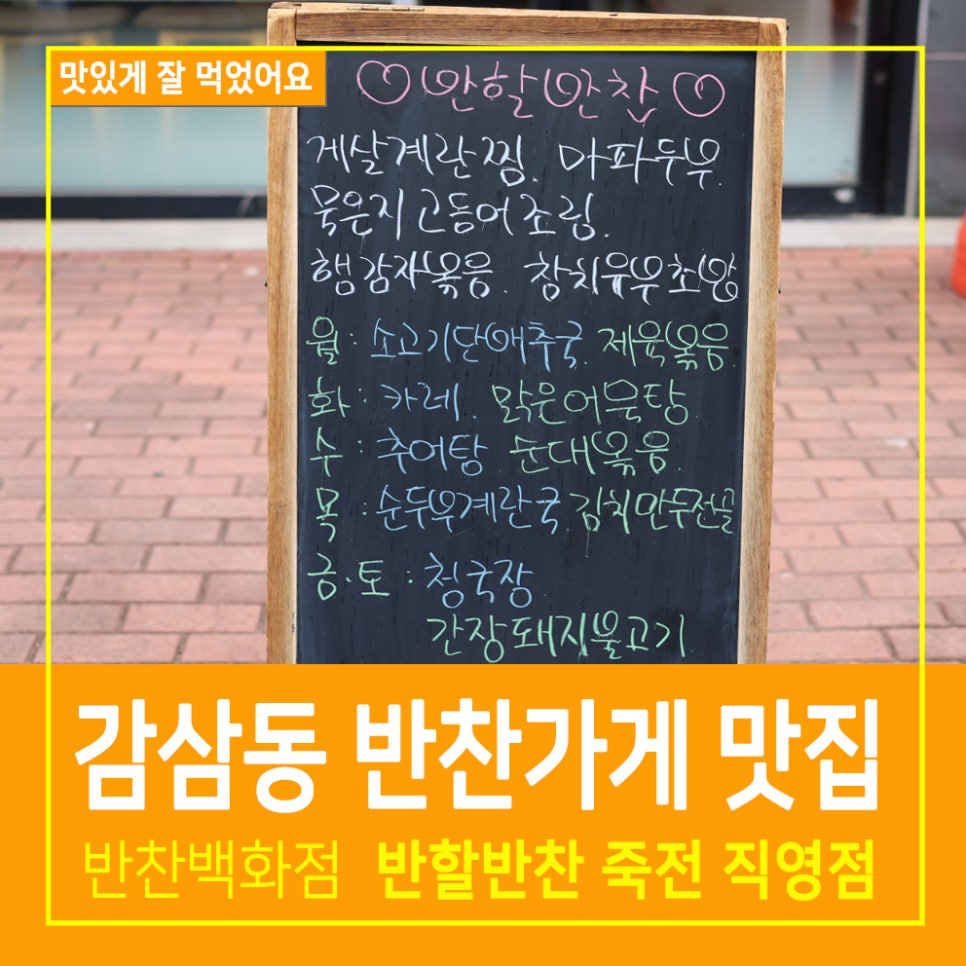 맛있게 잘 먹었어요
반할반찬
게살계란찜. 마파두부.
묵은지고등어조림.
햄감자볶음. 참치유부초밥
월 : 소고기단배추국. 제육볶음.
화 : 카레. 맑은어묵탕.
수 : 추어탕 순대볶음.
목 : 순두부계란국 김치만두전골
금.토 : 청국장
간장돼지불고기
감삼동 반찬가게 맛집
반찬백화점 반할반찬 죽전 직영점